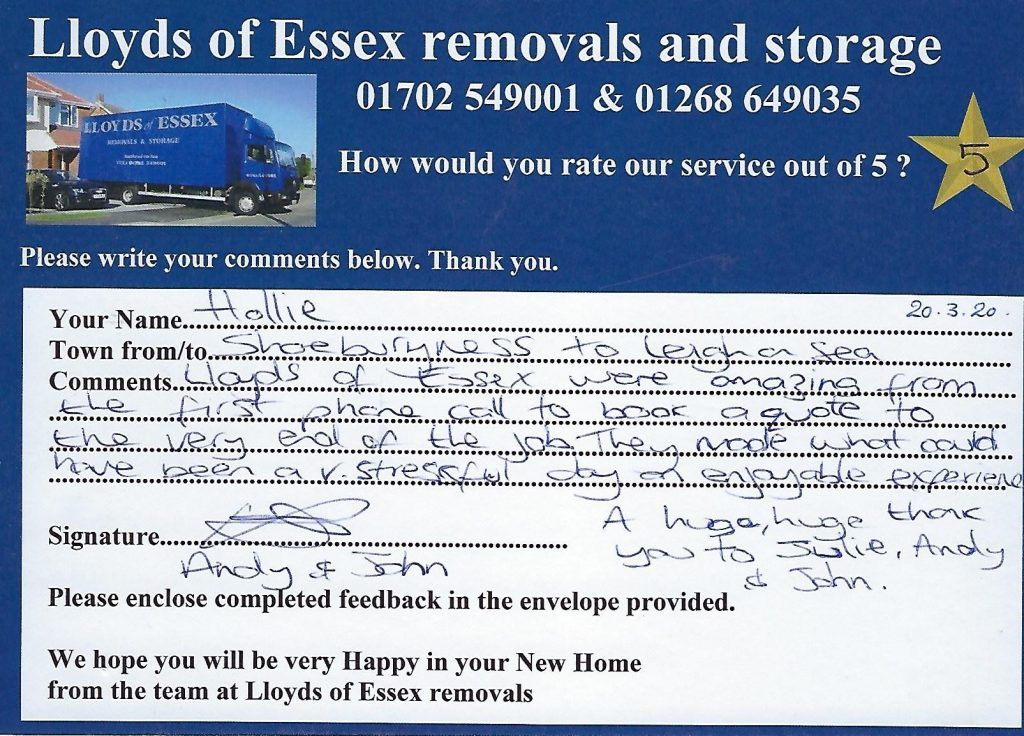 Lloyds of Essex removals and storage
01702 549001 & 01268 649035
LLOYDS of ESSEX
REMOVALS & STORAGE
How would you rate our service out of 5 ?
5
Please write your comments below. Thank you.
20.3.20.
Your Name Hollie
Town from/to Shoeburyness to Leigh on Sea
Comments Lloyds of Essex were amazing from
the first phone call to book a quote to
the very end of the job. They made what could
have been a v. stressful day an enjoyable experience
A huge, huge thank
you to Julie, Andy
& John.
Signature
Andy & John
Please enclose completed feedback in the envelope provided.
We hope you will be very Happy in your New Home
from the team at Lloyds of Essex removals